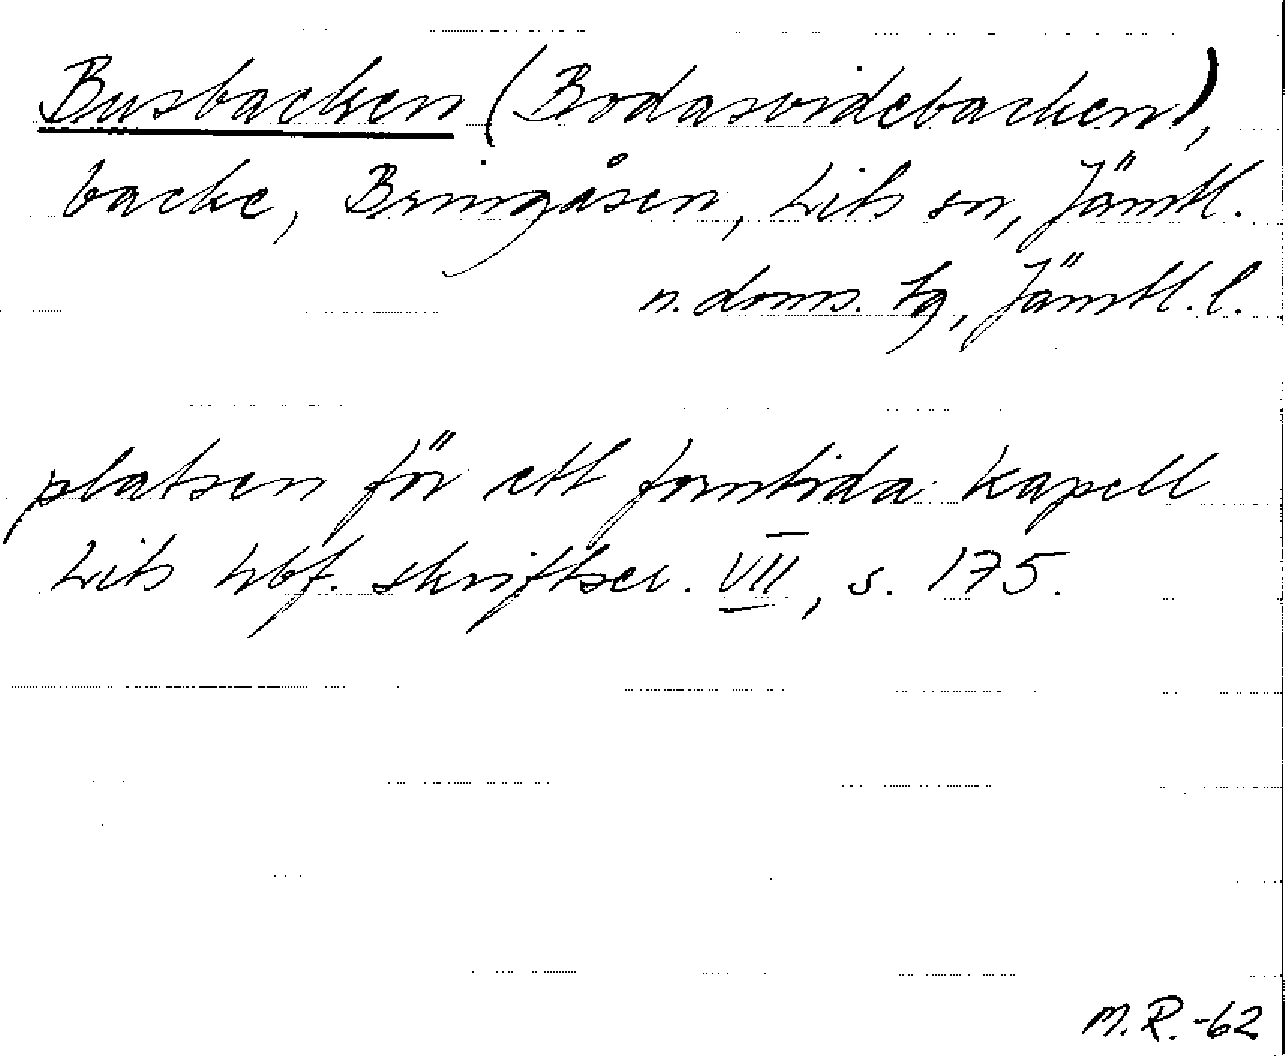 Busbacken (Bodasvidebacken),
backe, Bringåsen, Lits sn, Jämtl.
n. doms. tg, Jämtl. l.
platsen för ett forntida kapell
Lits hbf. skriftser. VII, s. 175.
M.R.-62